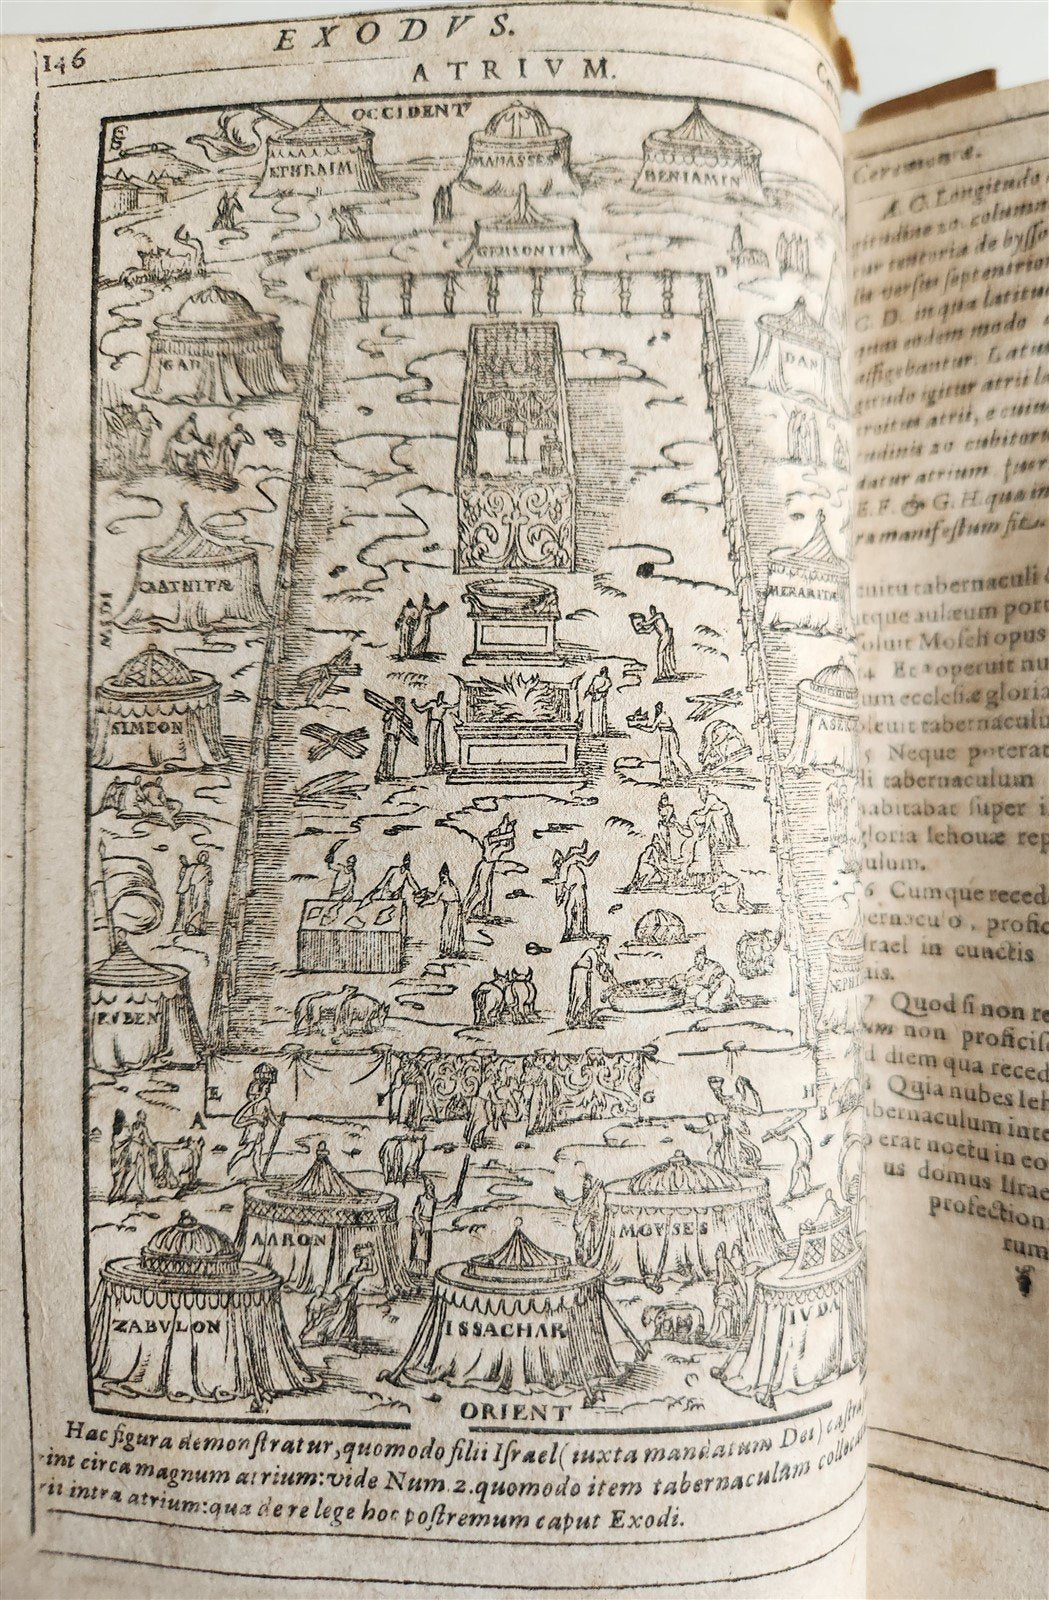 146
EXODVS.
ATRIVM.
OCCIDENT
EPHRAIM
MANASSES
BENIAMIN
GERSONITÆ
C
D
GAD
DAN
CAATHITÆ
MERARITÆ
SIMEON
ASER
RVBEN
NEPH
E
F
G
H
A
B
AARON
MOYSES
ZABVLON
ISSACHAR
IVDA
ORIENT
Hac figura demonſtratur, quomodo filii Iſrael (iuxta mandatum Dei) caſtra
int circa magnum atrium: vide Num 2. quomodo item tabernaculum colloca
rii intra atrium: qua de re lege hoc poſtremum caput Exodi.
Ceremoniæ.
Æ. C. Longitudo
gitudine 20. columna
tur tentoria de byſſo
verſus ſeptentrion
C. D. in qua latitu
quum eodem modo
affigebantur. Latus
gitudo igitur atrii
troitus atrii, e cuius
tudinis 20 cubitoru
datur atrium
E. F. & G. H. qua in
ra manifeſtum fit.
cuitu tabernaculi
tque aulæum port
ſoluit Moſeh opus
4 Et operuit nu
um eccleſiæ gloria
pleuit tabernaculu
5 Neque poterat
di tabernaculum
habitabat ſuper i
gloria Iehouæ rep
culum.
6 Cumque reced
bernaculo, profic
ſrael in cunctis
uis.
7 Quod ſi non re
um non proficiſ
d diem qua reced
8 Quia nubes Ieh
bernaculum inte
erat noctu in eo
us domus Iſrae
profection
rum